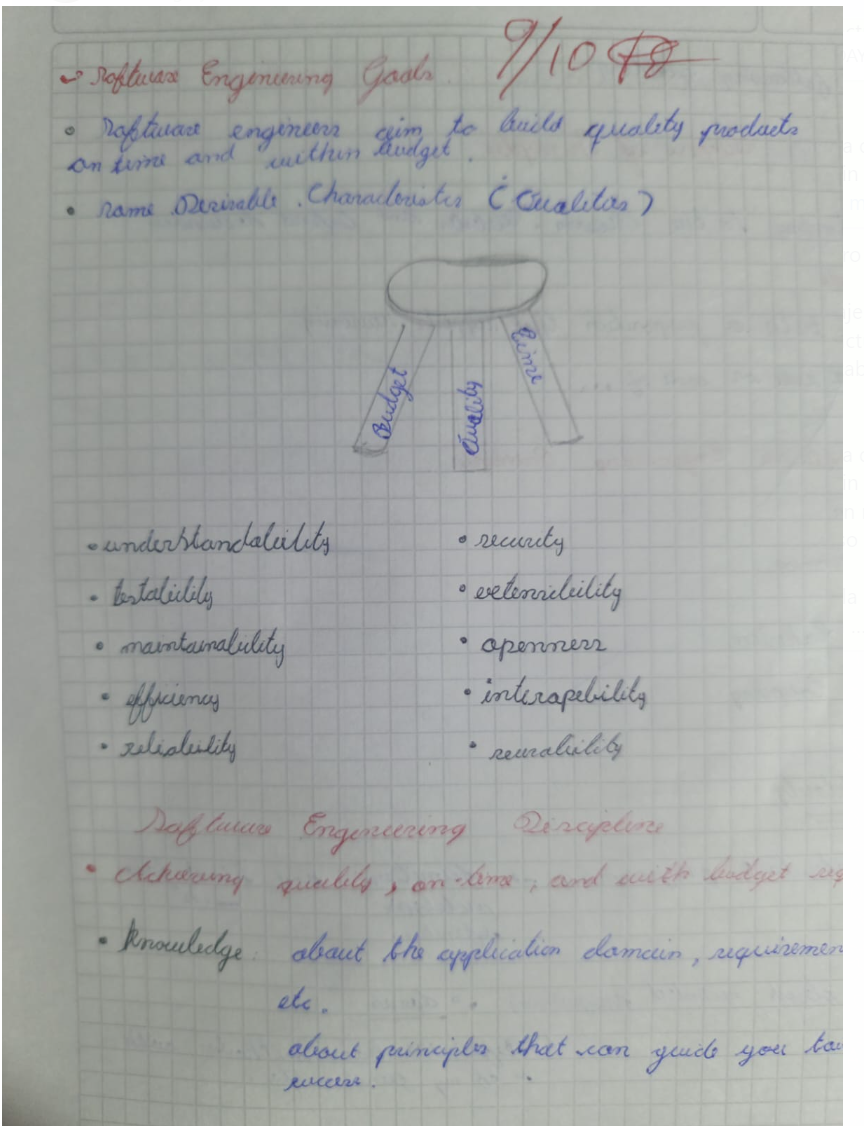 9/10
Software Engineering Goals
• Software engineers aim to build quality products
on time and within budget.
• Some Desirable Characteristics (Qualities)
Budget
Quality
time
• understandability
• testability
• maintainability
• efficiency
• reliability
• security
• extensibility
• openness
• interapebility
• reusability
Software Engineering Discipline
• Achieving quality, on-time, and with budget req
• Knowledge: about the application domain, requiremen
etc.
about principles that can guide you to
success.